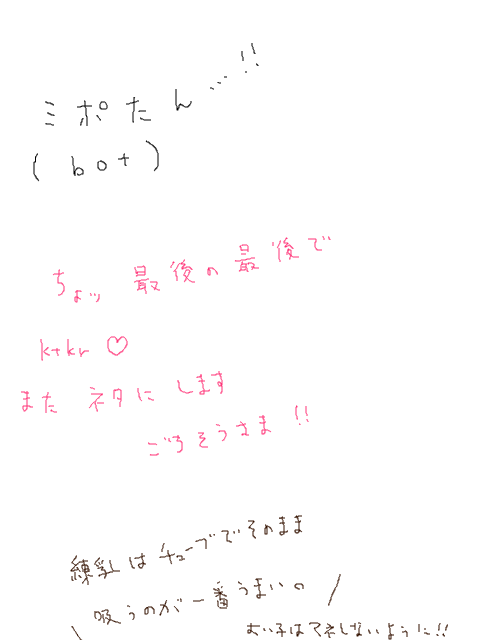 ミポたん…!!
(bot)
ちょッ 最後の最後で
ktkr♡
また ネタに します
ごちそうさま!!
練乳はチューブでそのまま
吸うのが一番うまいの
よい子はマネしないように!!